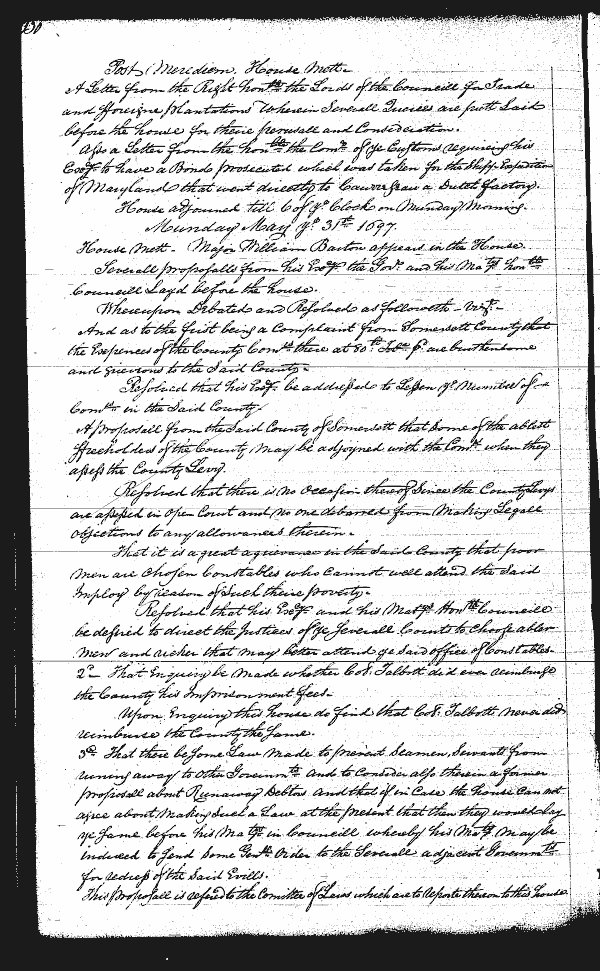 Post Meridiem. House Mett.
A Letter from the Right hon.ble the Lords of the Councill for Trade
and fforeigne plantations Wherein Severall Queries are putt Laid
before the house for theire perusall and Consideration.
Also a Letter from the hon.ble the Com.rs of ye Customs requiring his
Exc.y to have a Bond prosecuted which was taken for the Shipp Expedition
of Maryland that went directly to a Dutch factory.
House adjourned till 6 of ye Clock on Munday Morning.
Munday May ye 31st 1697.
House Mett. Major William Barton appears in the House.
Severall proposalls from his Exc.y the Gov.r and his Ma.tys hon.ble
Councill Layd before the house.
Whereupon Debated and Resolved as followeth - viz.t -
And as to the first being a Complaint from Somersett County that
the Expences of the County Com.rs there at 80lb Tob.o p. are burthensome
and grievious to the Said County.
Resolved that his Exc.y be addressed to Lessen ye Number of
Com.rs in the Said County.
A proposall from the Said County of Somersett that Some of the ablest
ffreeholders of the County may be adjoyned with the Com.rs when they
assess the County Levy.
Resolved that there is no Occasion thereof Since the County Levys
are assessed in Open Court and no one debarred from Making Legall
objections to any allowances therein.
That it is a great agrievance in the Said County that poor
men are Chosen Constables who Cannot well attend the Said
Imploy by reason of Such theire poverty.
Resolved that his Exc.y and his Mat.ys Hon.ble Councill
be desired to direct the Justices of ye Severall Courts to Choose abler
men and richer that may better attend ye Said office of Constables.
2d That Enquiry be Made whether Coll. Talbott did ever reimburse
the County his Imprisonment fees.
Upon Enquiry this house do find that Coll. Talbott never did
reimburse the County the Same.
3d That there be Some Law Made to prevent Seamen, Servants from
runing away to other Governm.ts And to Consider also therein a former
proposall about Runaway Debtors And that if in Case the house Can not
agree about Making Such a Law at the present that then they would Lay
ye Same before his Ma.ty in Councill whereby his Ma.ty may be
induced to Send Some Gen.ll Order to the Severall adjacent Governm.ts
for redress of the Said Evills.
This Proposall is refered to the Comittee of Laws which are to reporte thereon to this house